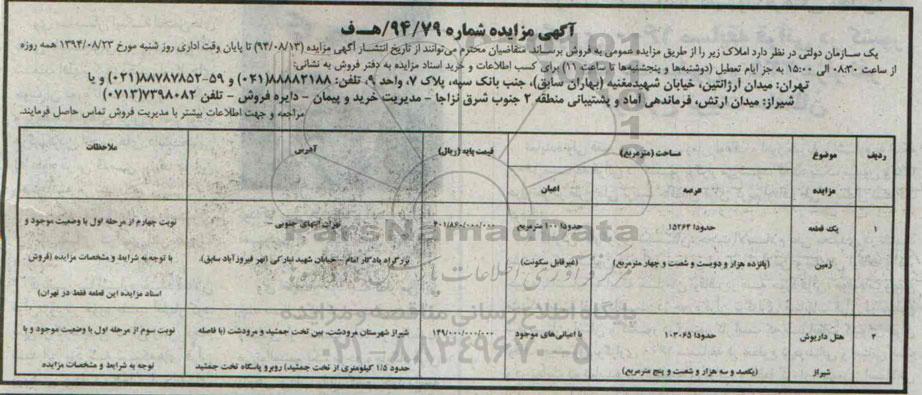 آگهی مزایده شماره ۹۴/۷۹/هـ‌ف
یک سازمان دولتی در نظر دارد املاک زیر را از طریق مزایده عمومی به فروش برساند. متقاضیان محترم می‌توانند از تاریخ انتشار آگهی مزایده (۹۴/۰۸/۱۳) تا پایان وقت اداری روز شنبه مورخ ۱۳۹۴/۰۸/۲۳ همه روزه
از ساعت ۰۸:۳۰ الی ۱۵:۰۰ به جز ایام تعطیل (دوشنبه‌ها و پنجشنبه‌ها تا ساعت ۱۱) برای کسب اطلاعات و خرید اسناد مزایده به دفتر فروش به نشانی:
تهران: میدان آرژانتین، خیابان شهیدمغنیه (بهاران سابق)، جنب بانک سپه، پلاک ۷، واحد ۹، تلفن: ۸۸۸۸۲۱۸۸(۰۲۱) و ۵۹-۸۸۷۸۷۸۵۲(۰۲۱) و یا
شیراز: میدان ارتش، فرماندهی آماد و پشتیبانی منطقه ۲ جنوب شرق نزاجا - مدیریت خرید و پیمان - دایره فروش - تلفن ۷۳۹۸۰۸۲(۰۷۱۳)
مراجعه و جهت اطلاعات بیشتر با مدیریت فروش تماس حاصل فرمایند.
ردیف موضوع مزایده مساحت (مترمربع) قیمت پایه (ریال) آدرس ملاحظات
عرصه اعیان
۱ یک قطعه حدودا ۱۵۲۶۴ حدودا ۱۰۰ مترمربع ۲۰۱/۸۶۰/۰۰۰/۰۰۰ تهران انتهای جنوبی نوبت چهارم از مرحله اول با وضعیت موجود و
زمین (پانزده هزار و دویست و شصت و چهار مترمربع) (غیرقابل سکونت) بزرگراه یادگار امام - خیابان شهید تبارکی (نهر فیروزآباد سابق). با توجه به شرایط و مشخصات مزایده (فروش
اسناد مزایده این قطعه فقط در تهران)
۲ هتل داریوش حدودا ۱۰۳۰۶۵ با اعیانی‌های موجود ۱۴۹/۰۰۰/۰۰۰/۰۰۰ شیراز شهرستان مرودشت، بین تخت جمشید و مرودشت (با فاصله نوبت سوم از مرحله اول با وضعیت موجود و با
شیراز (یکصد و سه هزار و شصت و پنج مترمربع) حدود ۱/۵ کیلومتری از تخت جمشید) روبرو پاسگاه تخت جمشید توجه به شرایط و مشخصات مزایده
ParsNamadData
پایگاه اطلاع رسانی مناقصه و مزایده
۰۲۱-۸۸۳۴۹۶۷۰-۵